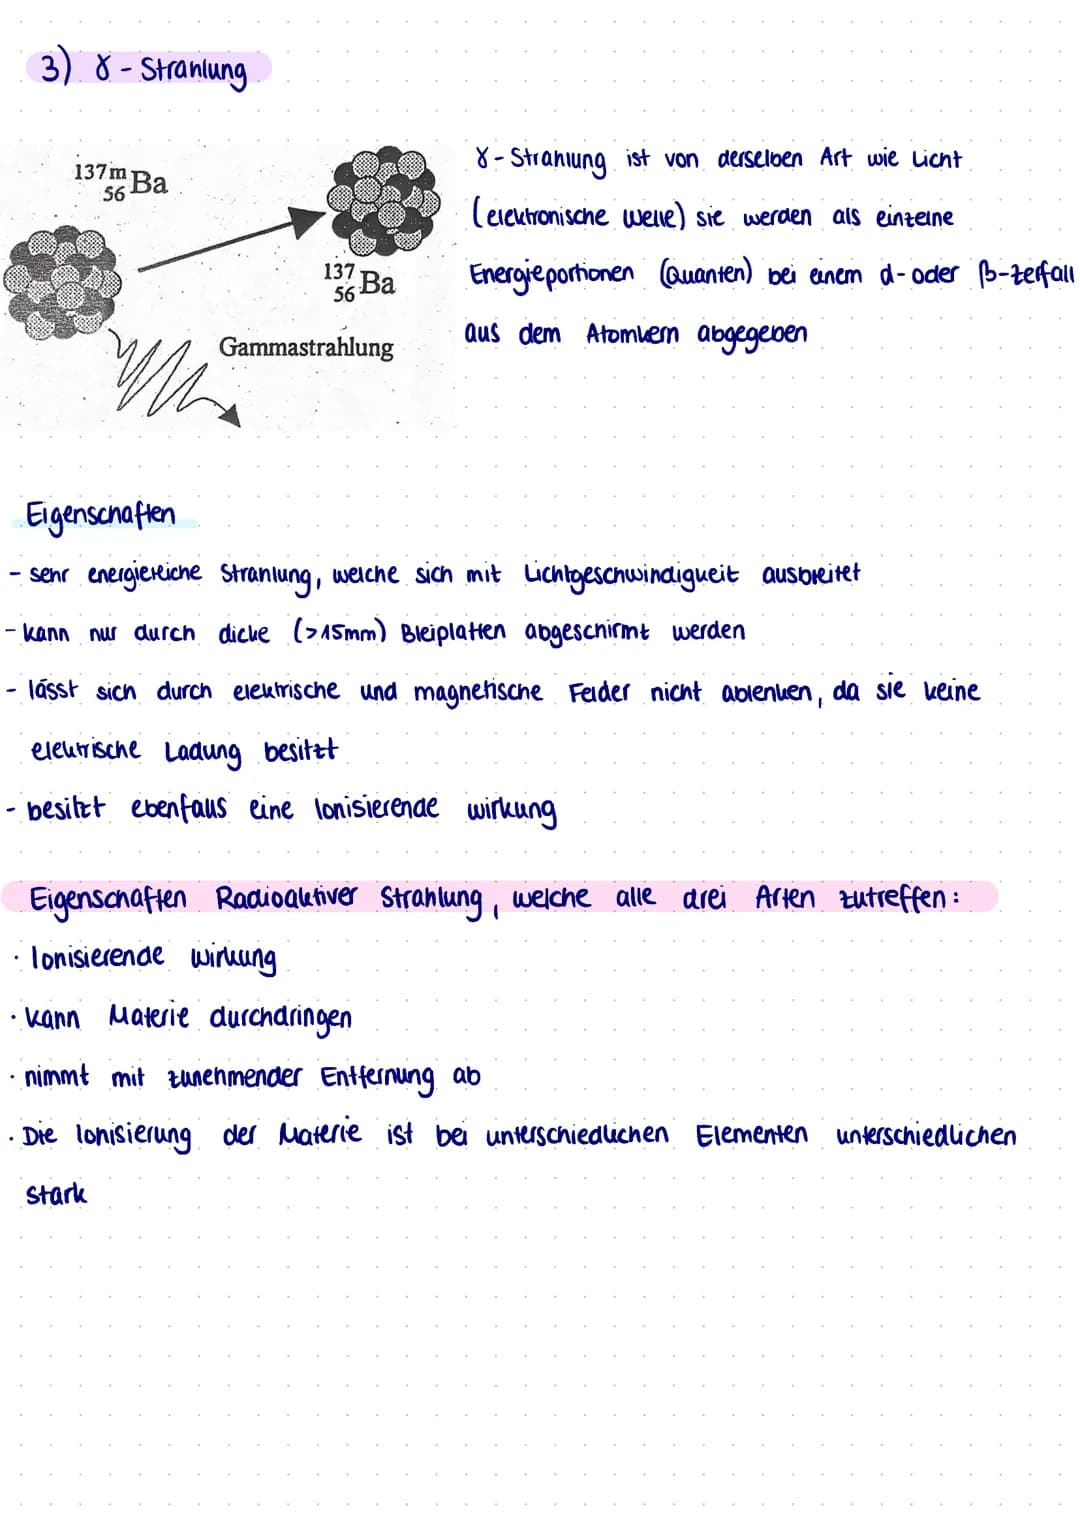 3) γ - Strahlung
137m
56 Ba
137
56 Ba
Gammastrahlung
γ - Strahlung ist von derselben Art wie Licht
(elektronische Welle) sie werden als einzelne
Energieportionen (Quanten) bei einem α- oder β-zerfall
aus dem Atomkern abgegeben
Eigenschaften
- sehr energiereiche Strahlung, welche sich mit Lichtgeschwindigkeit ausbreitet
- kann nur durch dicke (>15mm) Bleiplatten abgeschirmt werden
- lässt sich durch elektrische und magnetische Felder nicht ablenken, da sie keine
elektrische Ladung besitzt
- besitzt ebenfalls eine Ionisierende wirkung
Eigenschaften Radioaktiver Strahlung, welche alle drei Arten zutreffen:
· Ionisierende wirkung
· kann Materie durchdringen
· nimmt mit zunehmender Entfernung ab
· Die Ionisierung der Materie ist bei unterschiedlichen Elementen unterschiedlichen
stark